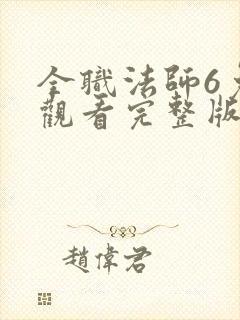 全職法師6免
觀看完整版
趙偉君